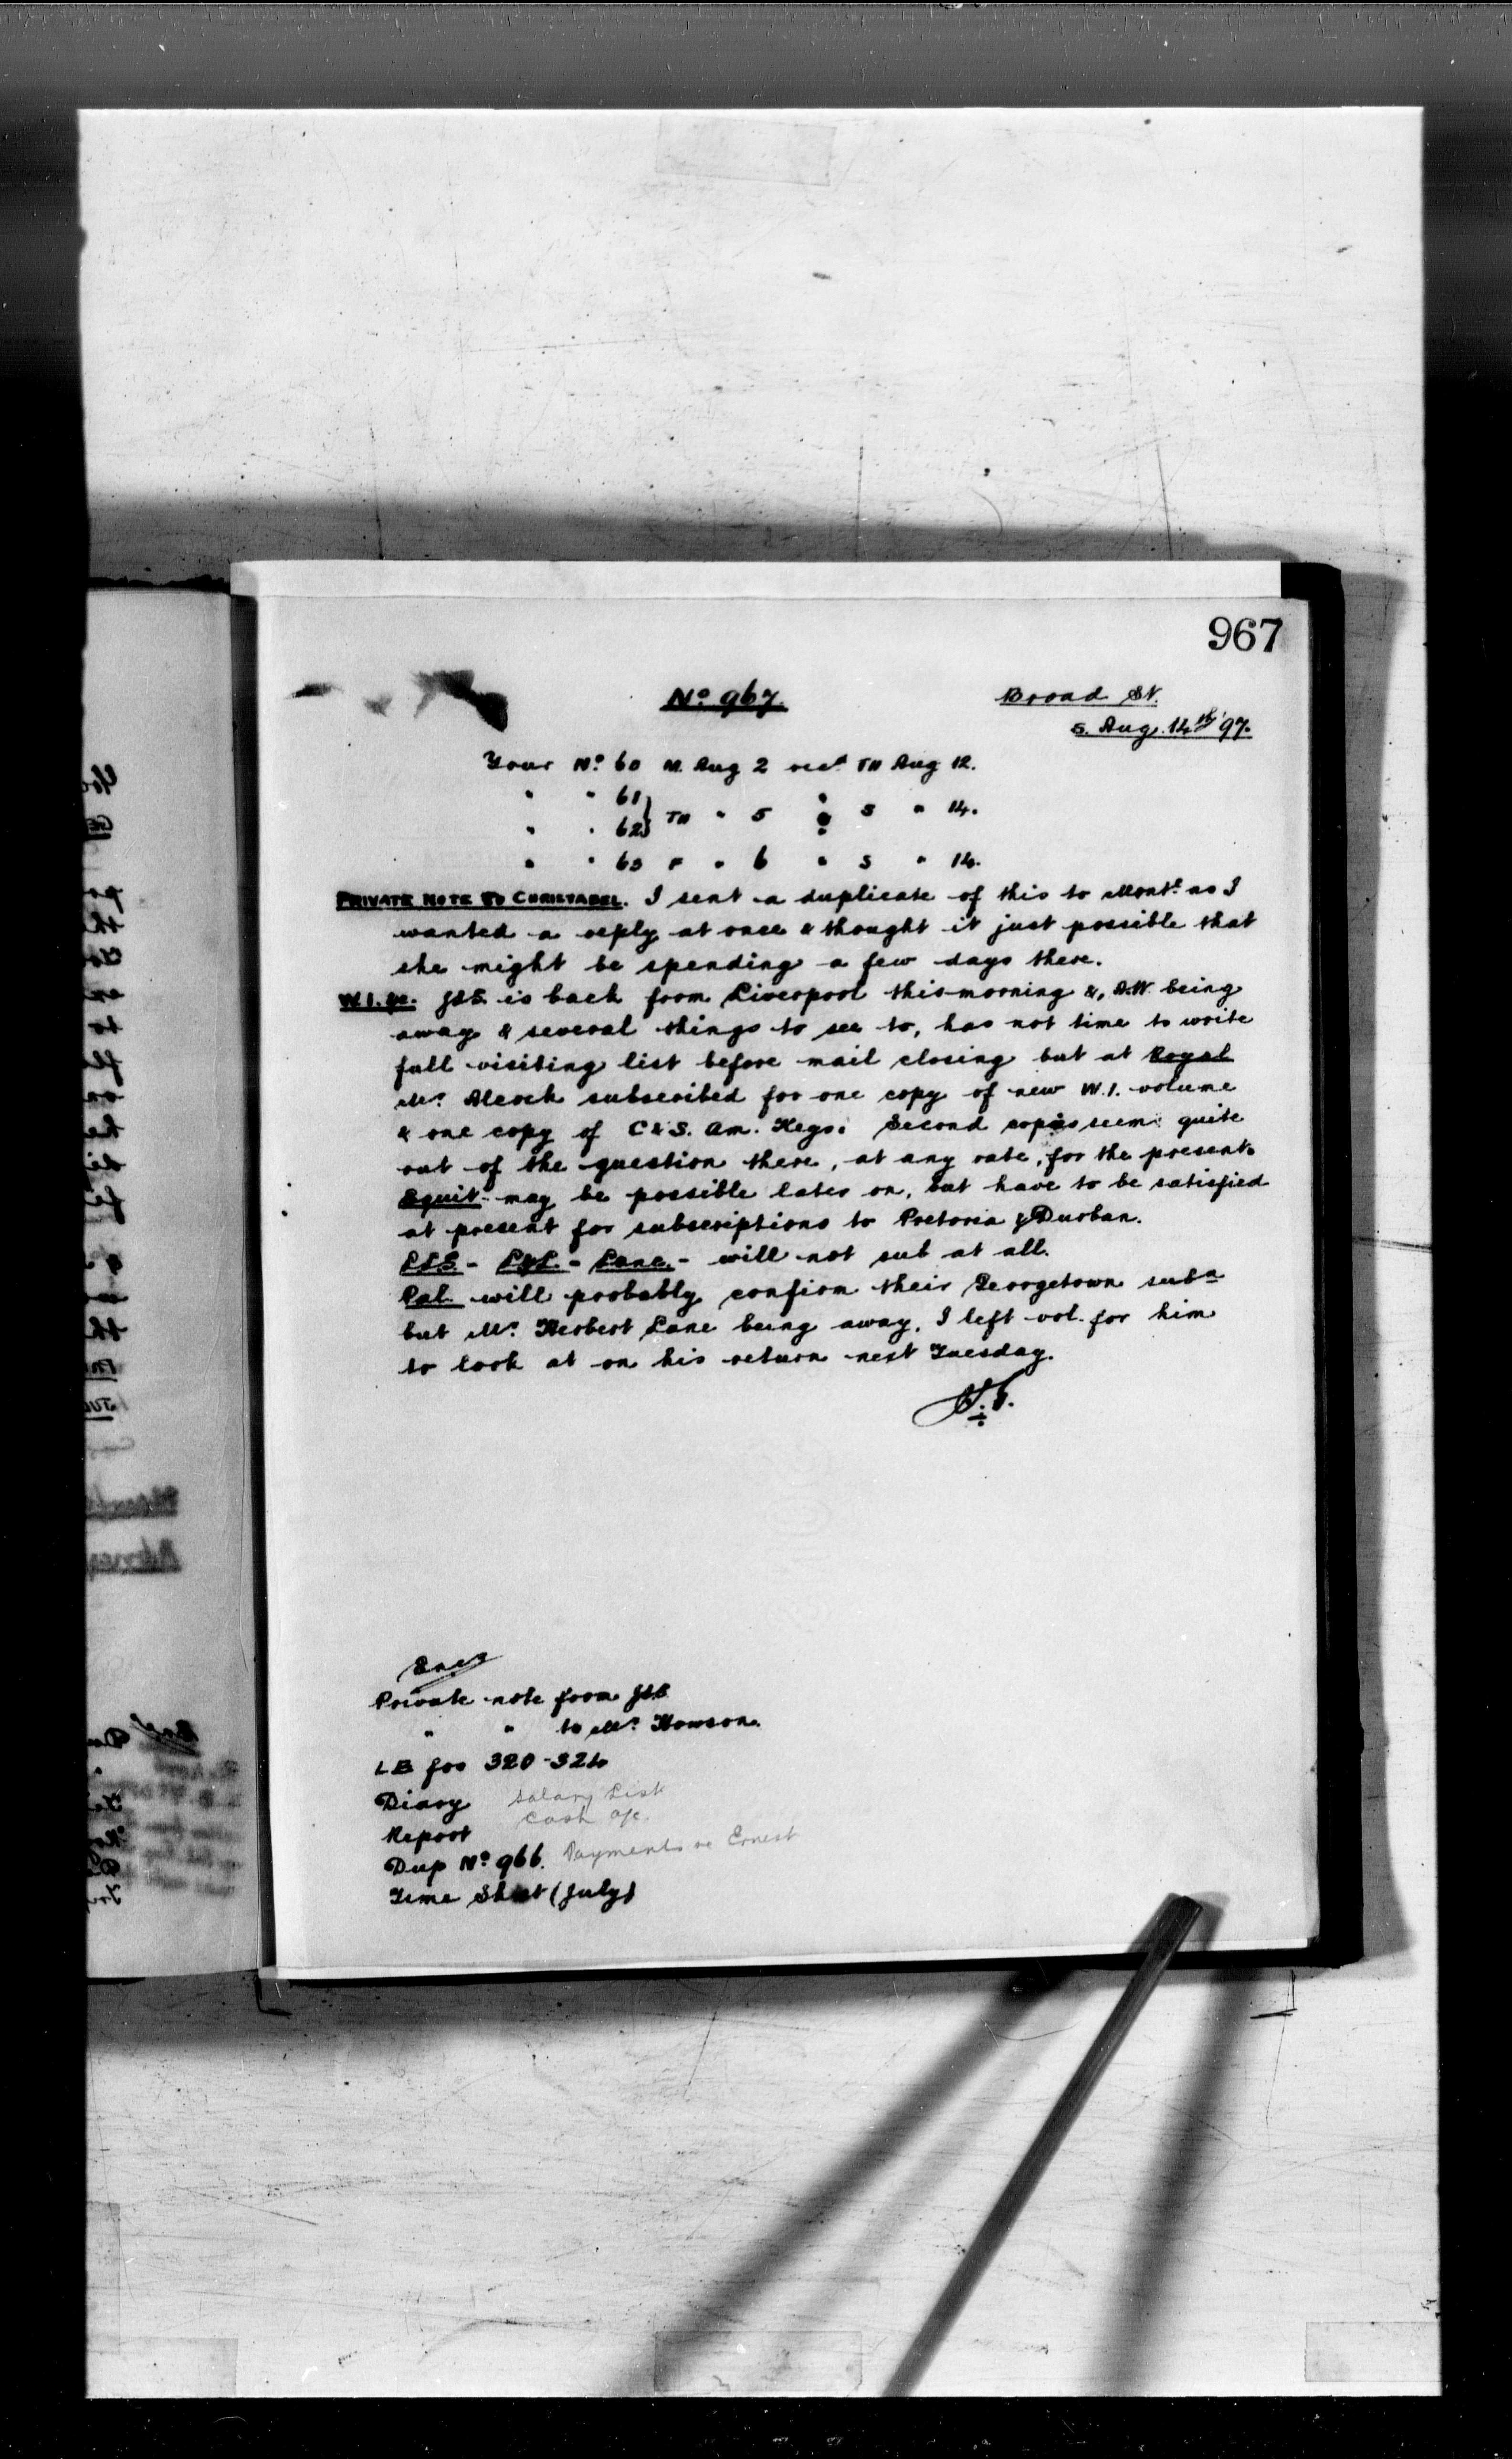 967
No 967.
Broad St.
S. Aug. 14th '97.
Your No 60 M. Aug 2 recd TH Aug 12.
" " 61 } TH " 5 " S " 14.
" " 62 }
" " 63 F " 6 " S " 14.
PRIVATE NOTE TO CHRISTABEL. I sent a duplicate of this to Montl as I
wanted a reply at once & thought it just possible that
she might be spending a few days there.
W.I. is back from Liverpool this morning &, A.W. being
away & several things to see to, has not time to write
full visiting list before mail closing but at Royal
Mr. Alcock subscribed for one copy of new W.I. volume
& one copy of C & S. Am. Keys. Second copies seem quite
out of the question there, at any rate, for the present.
Equit. may be possible later on, but have to be satisfied
at present for subscriptions to Pretoria & Durban.
Lane - will not sub at all.
Pal. will probably confirm their Georgetown subn
but Mr. Herbert Lane being away, I left vol. for him
to look at on his return next Tuesday.
Encs
Private note from
" " to Mr. Howson.
LB fos 320-324
Diary Salary List
Cash a/c.
Report
Dup No 966. Payments re Ernest
Time Sheet (July)